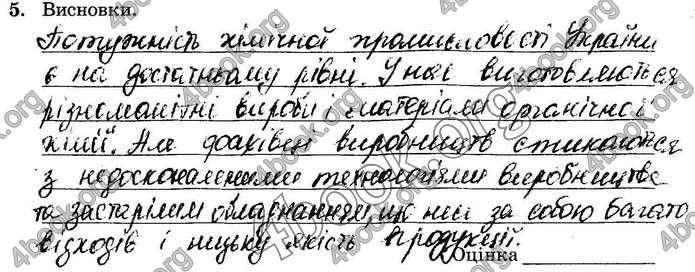 5. Висновки.
Потужність хімічної промисловості України
є на достатньому рівні. У ній виготовляються
різноманітні вироби і матеріали органічної
хімії. Але фахівці виробництв стикаються
з недосконалими технологіями виробництва
та застарілим обладнанням, що несе за собою багато
відходів і низьку якість продукції.
Оцінка
4book.org